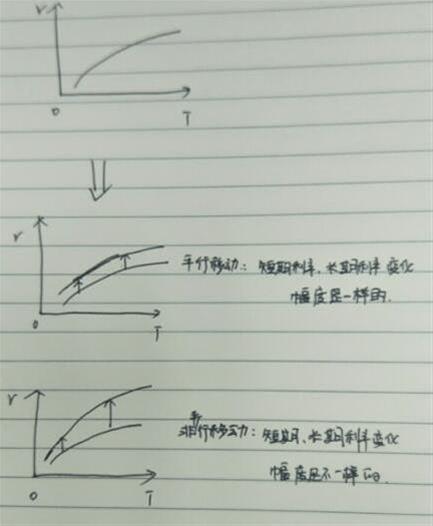 r
0
T
r
平行移动：短期利率、长期利率变化
幅度是一样的.
0
T
r
非平行移动：短期、长期利率变化
幅度是不一样的.
0
T